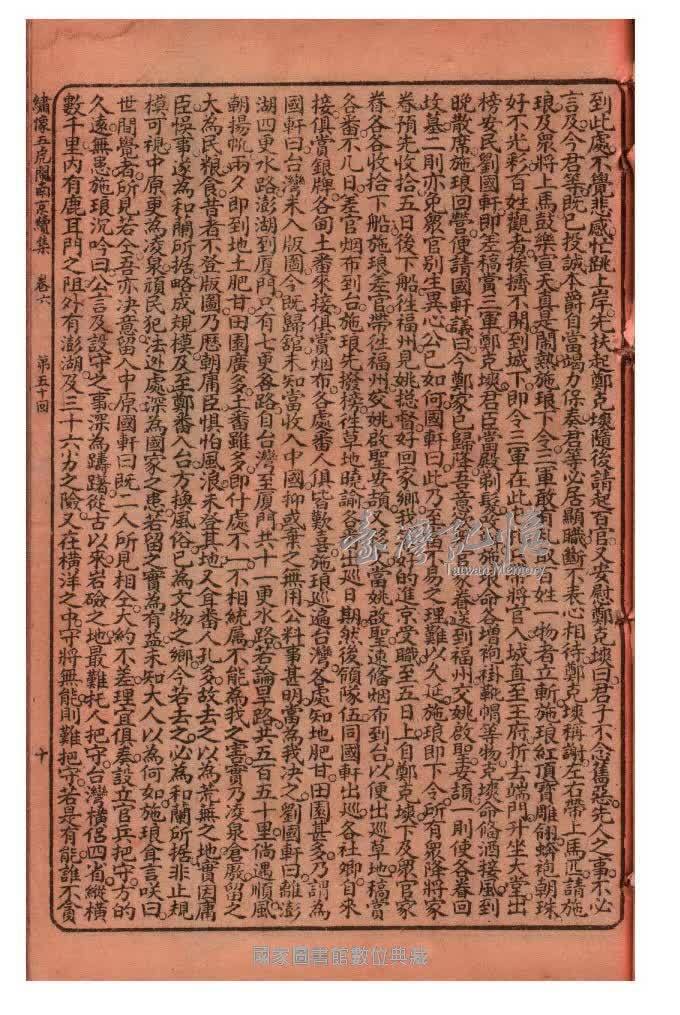 到此處不覺悲感忙跳上岸先扶起鄭克塽隨後請起百官又安慰鄭克塽曰君子不念舊惡先人之事不必
言及今君等既已投誠本爵自當竭力保奏君等必居顯職斷不表心相待鄭克塽稱謝左右帶上馬匹請施
琅及衆將上馬鼓樂宣天真是鬧熱施琅下令三軍敢有乱取百姓一物者立斬施琅紅頂寶雕翎蟒袍朝珠
好不光彩百姓觀者挨擠不開到城下即令三軍在此 將官入城直至王府折去端門升坐大堂出
榜安民劉國軒即差稿賞三軍鄭克塽君臣當殿剃髮 施 命各增袍褂靴帽等物克塽命偹酒接風到
晚散席施琅回營便請國軒議曰今鄭家已歸降吾意 眷送到福州交姚啟聖安頓一則使各眷回
坟墓二則亦免衆官別生異心公已如何國軒曰此乃至 易之理難以久延施琅即下令所有衆降將家
眷預先收拾五日後下船往福州見姚揔督好回家鄉我 好的進京受職至五日上自鄭克塽下及衆官家
眷各各收拾下船施琅差官帶往福州交姚啟聖安頓又 當姚改聖速偹烟布到台以便出巡草地稿賞
各番不几日差官烟布到台施琅先撥榜往草地曉諭各 出巡日期然後領隊伍同國軒出巡各社鄉自來
接俱賞銀牌各甸土番來接俱賞烟布各處番人俱皆歡喜施琅巡遍台灣各處知地肥甘田園甚多乃謂為
國軒曰台灣未入版圖今既歸舘未知當收入中國抑或棄之無用公料事甚明當為我决之劉國軒曰離澎
湖四更水路澎湖到廈門只有七更海路自台灣至廈門共十一更水路若論旱路共五百五十里倘遇順風
朝揚帆兩夕即到地土肥甘田園廣多土番雖多即什處不一不相統属不能為我之害實乃凌泉倉廒留之
大為民粮食昔者不登版圖乃歷朝庸臣惧怕風浪未登其地又耳番人孔多故去之以為荒無之地實因庸
臣悞事遂為和蘭所据略成規模及至鄭番入台方換風俗已為文物之鄉今若去之必為和蘭所据非止規
模可視中原更為凌泉頑民犯法逃處深為國家之患若留之實為有益未知大人以為何如施琅耳言咲曰
世間譽者所見若仝吾亦決意留入中原國軒曰既二人所見相仝大約不差理宜俱奏設立官兵把守方的
久遠無患施琅沉吟曰公言及設守之事深為躊躇從古以來岩險之地最難托人把守台灣橫侶四省縱橫
數千里内有鹿耳門之阻外有澎湖及三十六 力之險又在横洋之中守將無能則難把守若是有能誰不貪
繡像五虎鬧南京續集 卷六 第五十回 十
臺灣記憶
Taiwan Memory
國家圖書館數位典藏